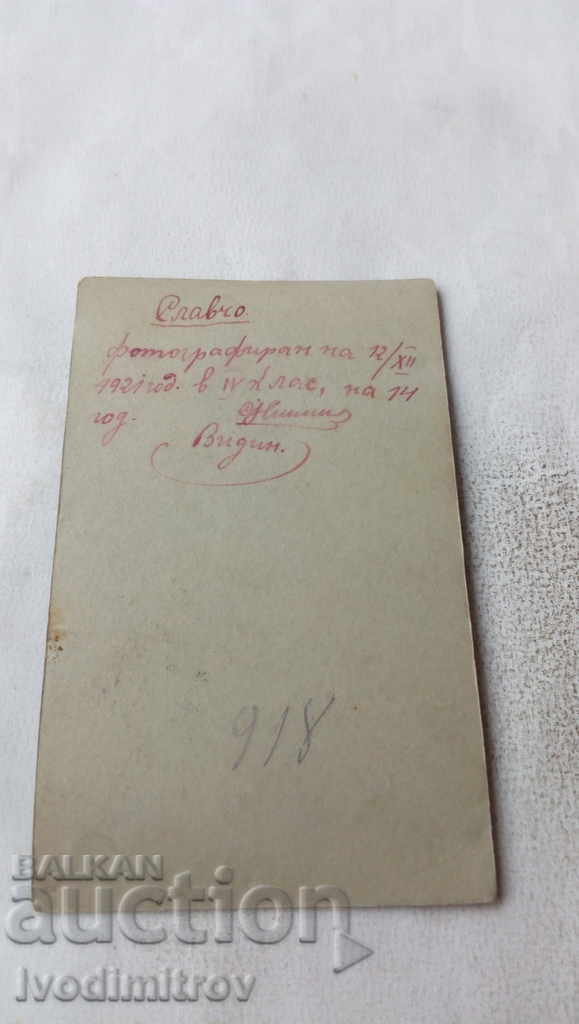 Славчо.
фотографиран на 12/XII
1921 год. в IV клас, на 14
год.
Видин.
918
BALKAN
auction
Ivodimitrov